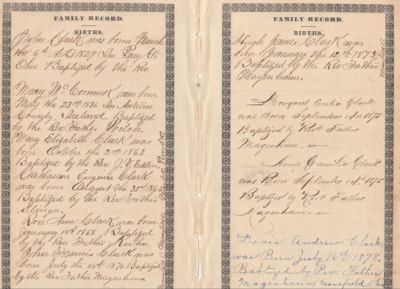 FAMILY RECORD.
BIRTHS.
John Clark was born March
the 6th AD 1829 In Perry Co
Ohio Baptized by the Rev
Mary Mc Cormick was born
May the 23rd 1834 In
County Ireland Baptized
by the Rev Father
Mary Elizabeth Clark was
born October the 2nd 1863
Baptized by the Rev J. V.
Catharine Clark
was born August the 31st 1865
Baptized by the Rev Father
Rose Ann Clark was born
January 18th 1868 Baptized
by the Rev Father
John Francis Clark was
born July the 14th 1870 Baptized
by the Rev Father Magenhann
FAMILY RECORD.
BIRTHS.
Hugh James Clark was
born January the 12th 1873
Baptized by the Rev Father
Magenhann.
Margaret Clark
was Born September 14th 1875
Baptized by Rev Father
Magenhann
Anna Clark
was Born September 14th 1875
Baptized by Rev Father
Magenhann
Andrew Clark
was Born July 16th 1878.
Baptized by Rev. Father
Magenhann Mansfield